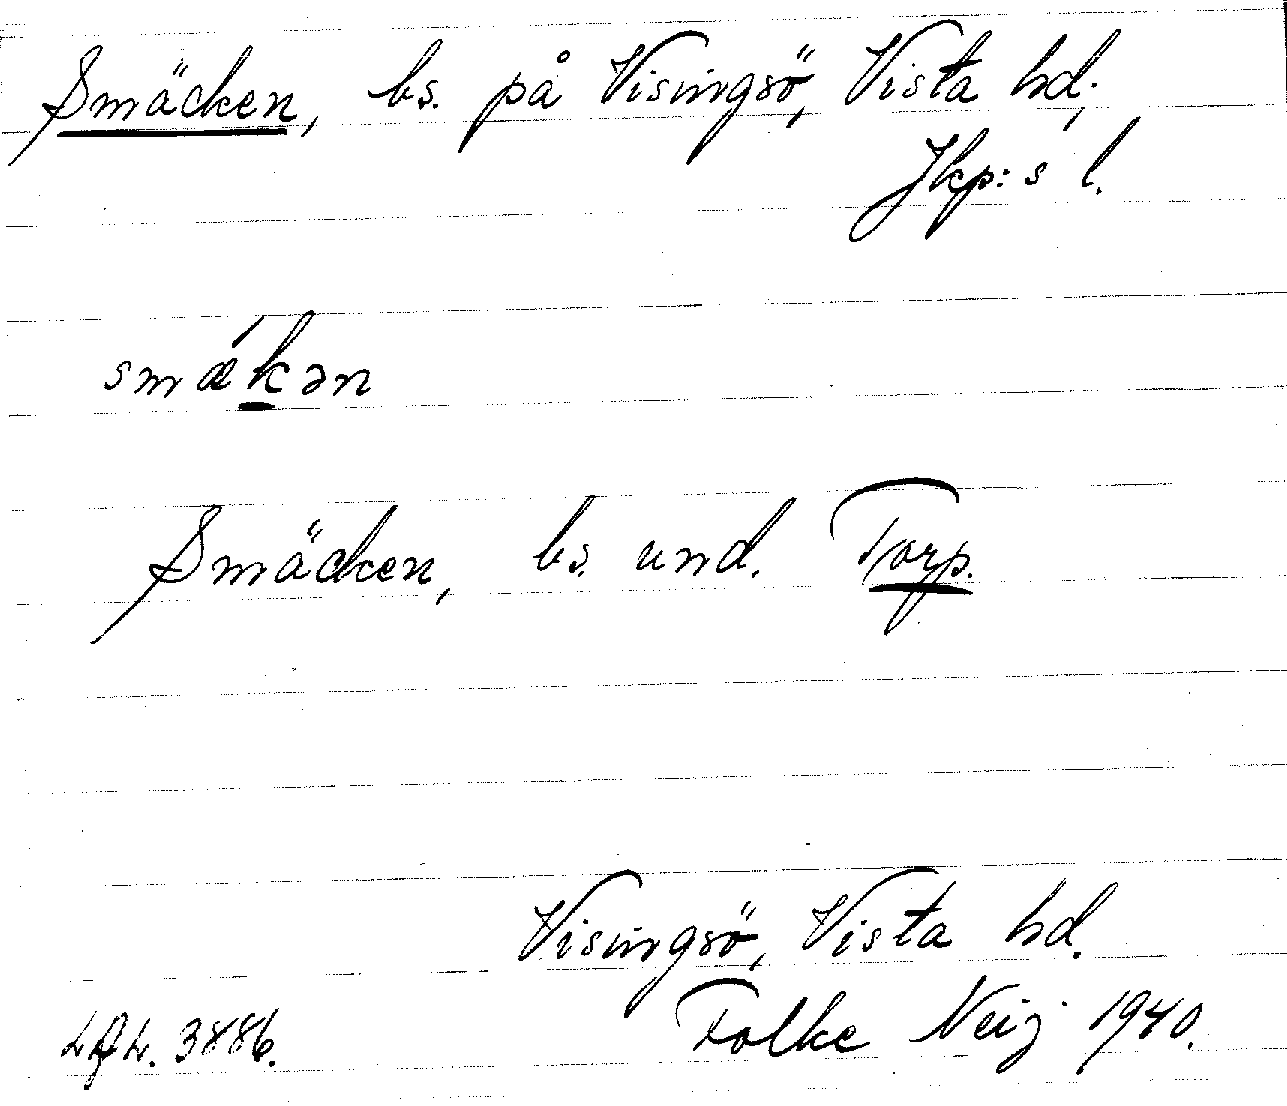 Smäcken, bs. på Visingsö, Vista hd;
Jkp:s l.
smǽkən
Smäcken, bs. und. Torp.
Visingsö, Vista hd.
Folke Neij 1940.
3886.